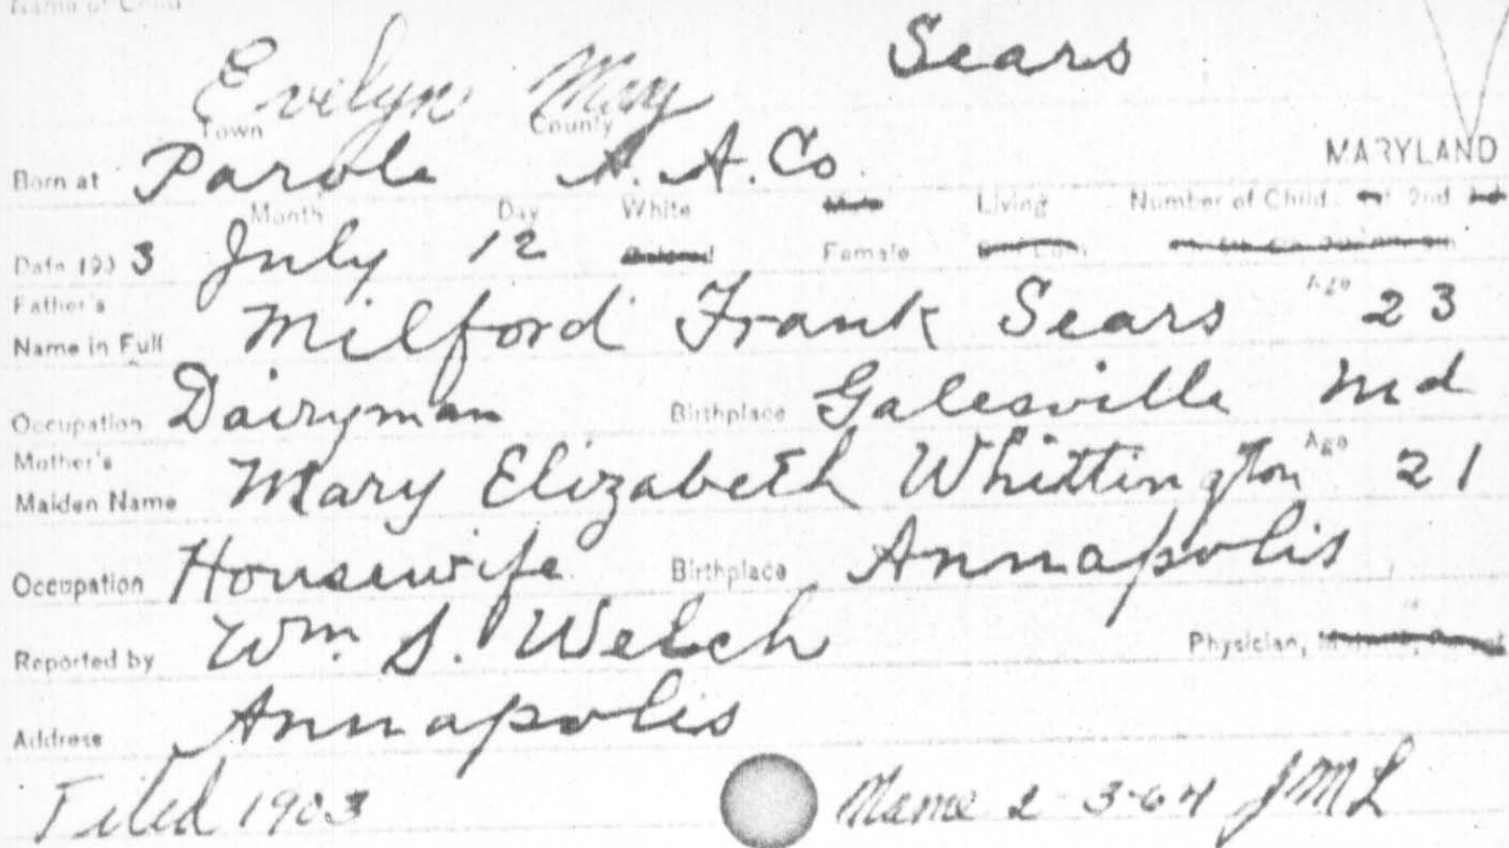 Name of Child
Sears
Evelyn May
Town County
Born at Parole A. A. Co. MARYLAND
Month Day White Male Living Number of Child 2nd
Date 1903 July 12 Colored Female
Father's Age
Name in Full Milford Frank Sears 23
Occupation Dairyman Birthplace Galesville Md
Mother's Age
Maiden Name Mary Elizabeth Whittington 21
Occupation Housewife Birthplace Annapolis
Reported by Wm. S. Welch Physician,
Address Annapolis
Filed 1903 Name 2-3-64 JML